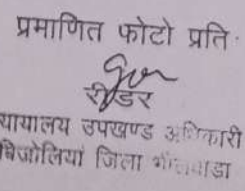 प्रमाणित फोटो प्रति
रीडर
यायालय उपखण्ड अधिकारी
बिजोलियां जिला भीलवाड़ा